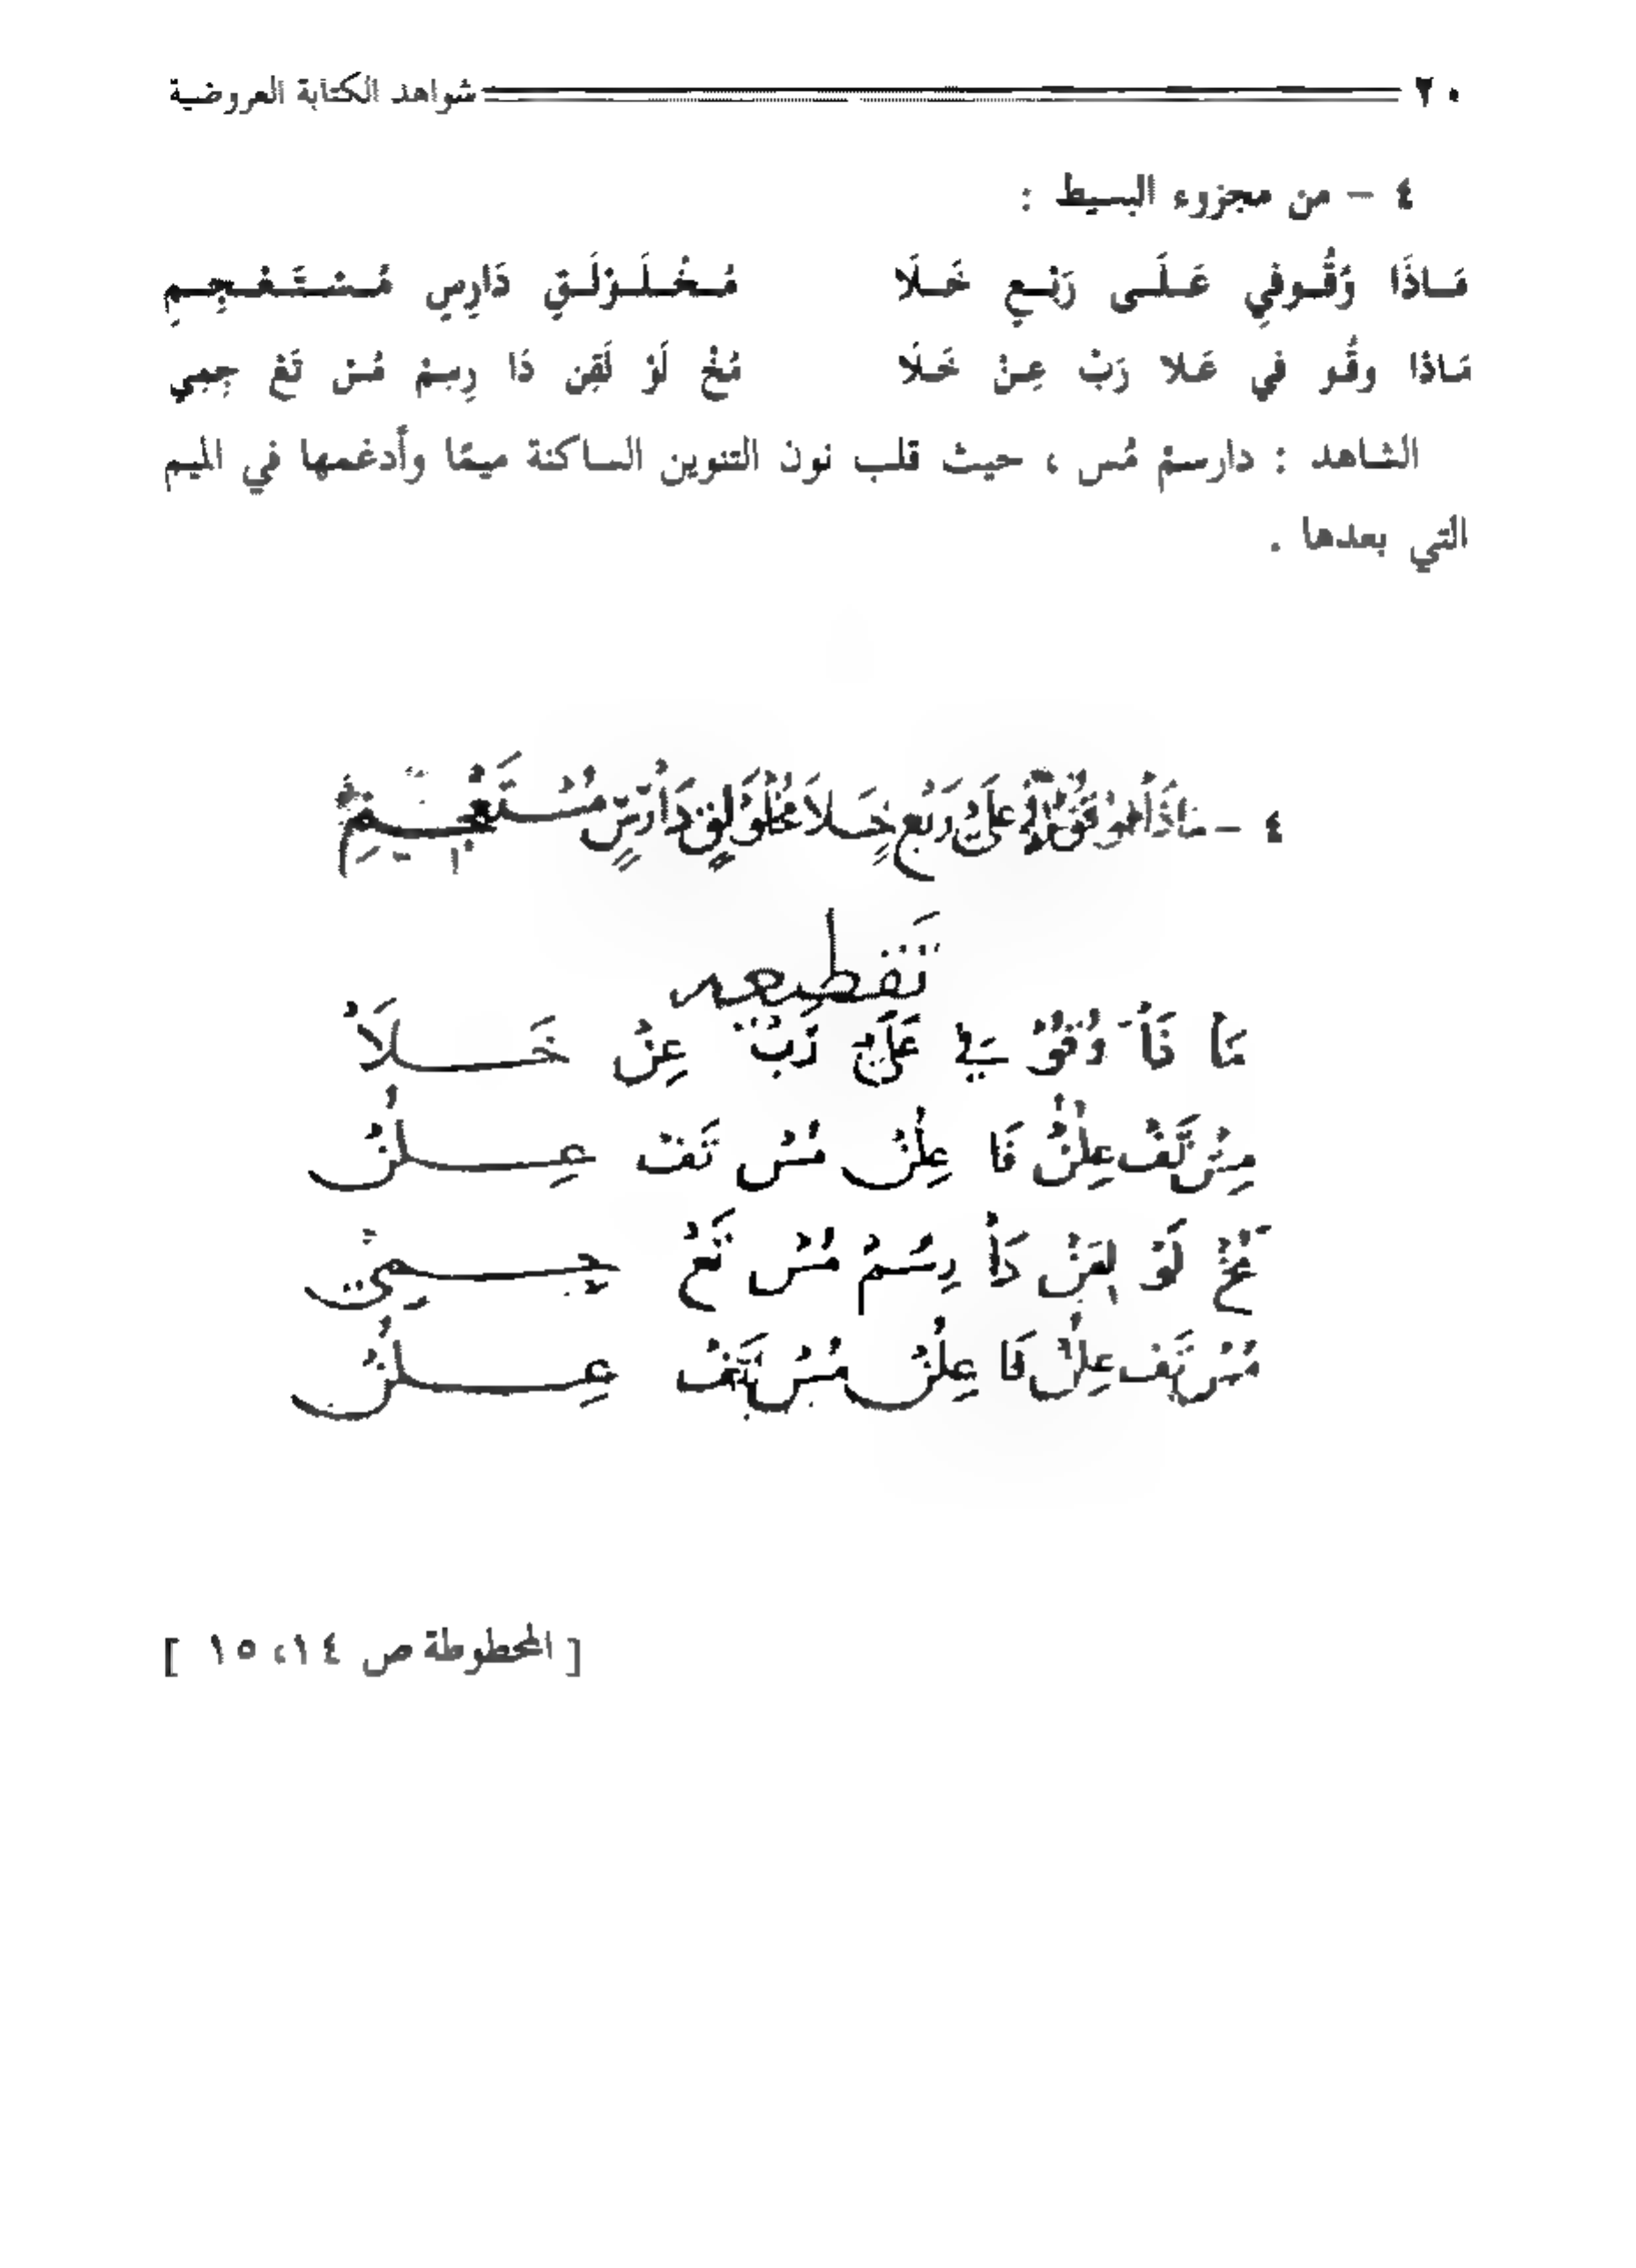 ٢٠ شواهد الكتابة العروضية
٤ – من مجزوء البسيط :
مَاذَا وُقُوفِي عَلَى رَبْعٍ خَلَا مُخْلَوْلَقٍ دَارِسٍ مُسْتَعْجِمِ
مَاذا وقُو في عَلا رَبْ عِنْ خَلَا مُخْ لَوْ لَقِن دَا رِسِمْ مُسْ تَعْ جِمِي
الشاهد : دارسمْ مُس ، حيث قلب نون التنوين الساكنة ميمًا وأدغمها في الميم
التي بعدها .
٤ –
تَقطِيعه
وُقُوْ فِي عَلَىْ رَبْ عِنْ خَلَاْ
عِلُنْ فَا عِلُنْ مُسْ تَفْ عِلُنْ
مُخْ لَوْ دَاْ رِسُمْ مُسْ تَعْ جِمِيْ
مُسْ تَفْ عِلُنْ فَا عِلُنْ مُسْ تَفْ عِلُنْ
[ المخطوطة ص ١٤، ١٥ ]